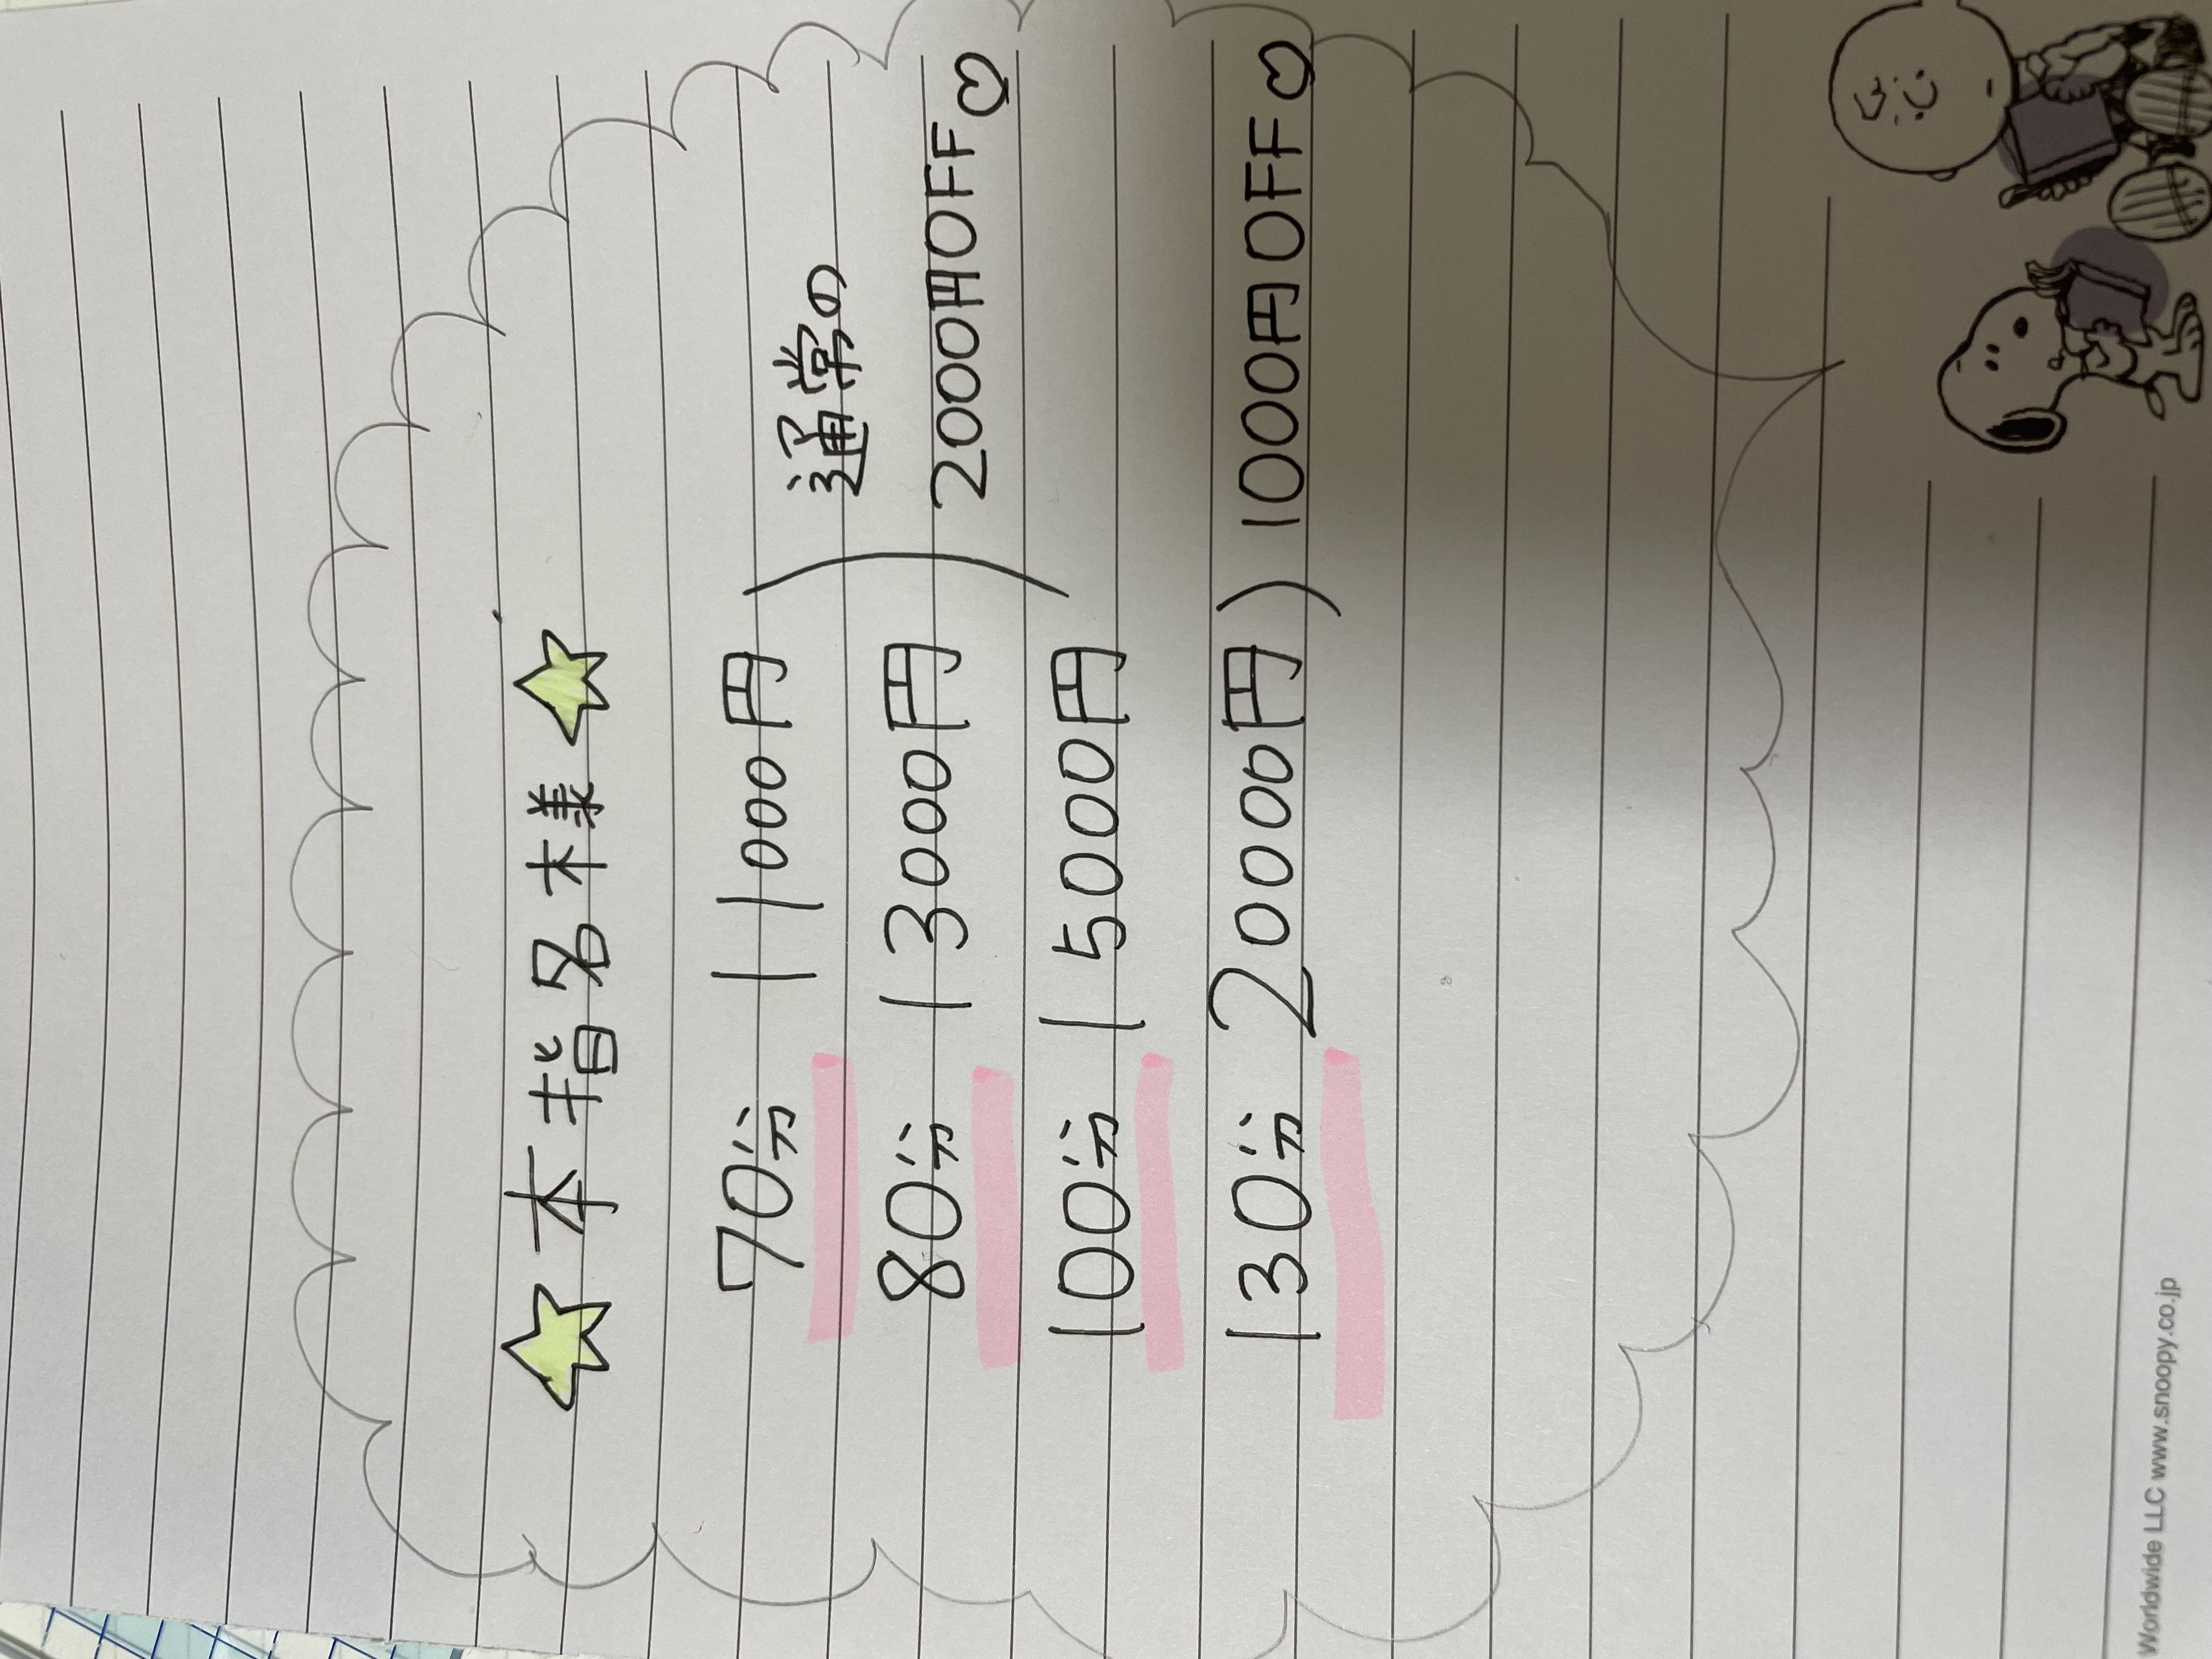 ☆本指名様☆
70分 11000円
80分 13000円
100分 15000円
) 通常の
2000円OFF♡
130分 20000円) 1000円OFF♡
Worldwide LLC www.snoopy.co.jp